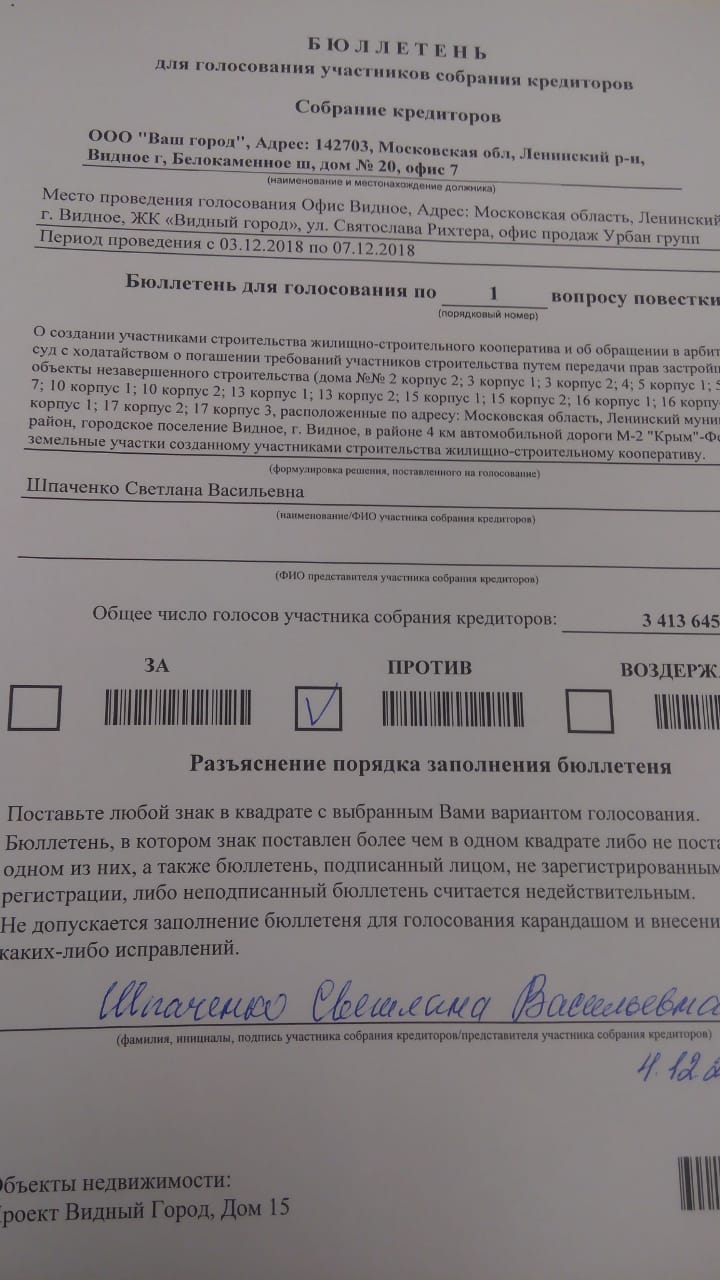 БЮЛЛЕТЕНЬ
для голосования участников собрания кредиторов
Собрание кредиторов
ООО "Ваш город", Адрес: 142703, Московская обл, Ленинский р-н,
Видное г, Белокаменное ш, дом № 20, офис 7
(наименование и местонахождение должника)
Место проведения голосования Офис Видное, Адрес: Московская область, Ленинский
г. Видное, ЖК «Видный город», ул. Святослава Рихтера, офис продаж Урбан групп
Период проведения с 03.12.2018 по 07.12.2018
Бюллетень для голосования по 1 вопросу повестки
(порядковый номер)
О создании участниками строительства жилищно-строительного кооператива и об обращении в арбит
суд с ходатайством о погашении требований участников строительства путем передачи прав застройщ
объекты незавершенного строительства (дома №№ 2 корпус 2; 3 корпус 1; 3 корпус 2; 4; 5 корпус 1; 5
7; 10 корпус 1; 10 корпус 2; 13 корпус 1; 13 корпус 2; 15 корпус 1; 15 корпус 2; 16 корпус 1; 16 корпус
корпус 1; 17 корпус 2; 17 корпус 3, расположенные по адресу: Московская область, Ленинский муни
район, городское поселение Видное, г. Видное, в районе 4 км автомобильной дороги М-2 "Крым"-Фе
земельные участки созданному участниками строительства жилищно-строительному кооперативу.
(формулировка решения, поставленного на голосование)
Шпаченко Светлана Васильевна
(наименование/ФИО участника собрания кредиторов)
(ФИО представителя участника собрания кредиторов)
Общее число голосов участника собрания кредиторов: 3 413 645
ЗА ПРОТИВ ВОЗДЕРЖ
Разъяснение порядка заполнения бюллетеня
Поставьте любой знак в квадрате с выбранным Вами вариантом голосования.
Бюллетень, в котором знак поставлен более чем в одном квадрате либо не поста
одном из них, а также бюллетень, подписанный лицом, не зарегистрированным
регистрации, либо неподписанный бюллетень считается недействительным.
Не допускается заполнение бюллетеня для голосования карандашом и внесени
каких-либо исправлений.
Шпаченко Светлана Васильевна
(фамилия, инициалы, подпись участника собрания кредиторов/представителя участника собрания кредиторов)
4.12.2
бъекты недвижимости:
роект Видный Город, Дом 15